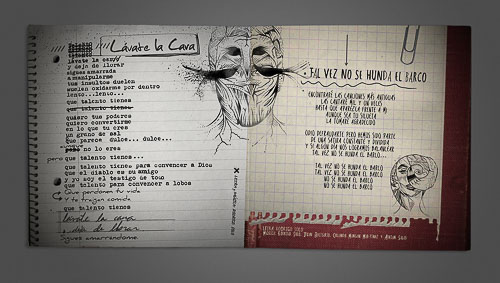 Lávate la Cara
lávate la cara
y dejo de llorar
sigues amarrada
a manipularme
tus insultos duelen
suelen oxidarme por dentro
lento...lento...
que talento tienes
que talento tienes
quiero tus podores
quiero convertirme
en lo que tu eres
un greno de sal
que parece dulce... dulce...
no lo eres
pero que talento tienes...
que talento tienes para convencer a Dios
que el diablo es su amigo
y yo soy el testigo de todo
que talento para convencer a lobos
Que perdonen tu vida
Y te traigan comida
que talento tienes
lávate la cara
y deja de llorar
Sigues amarrandome
TAL VEZ NO SE HUNDA EL BARCO
ENCONTRARÉ LAS CANCIONES MÁS ANTIGUAS
LAS CANTARÉ MIL Y UN VECES
HASTA QUE APAREZCA FRENTE A MI
AUNQUE SEA TU SILUETA
LA TOMARÉ AGRADECIDO
ODIO DEFRAUDARTE PERO HEMOS SIDO PARTE
DE UNA SANTA CONSTANTE Y DIVIDIDA
Y SI ALGÚN DÍA NOS LOGRAMOS BALANCEAR
TAL VEZ NO SE HUNDA EL BARCO...
TAL VEZ NO SE HUNDA EL BARCO
TAL VEZ NO SE HUNDA EL BARCO
NO SE HUNDA EL BARCO
NO SE HUNDA EL BARCO